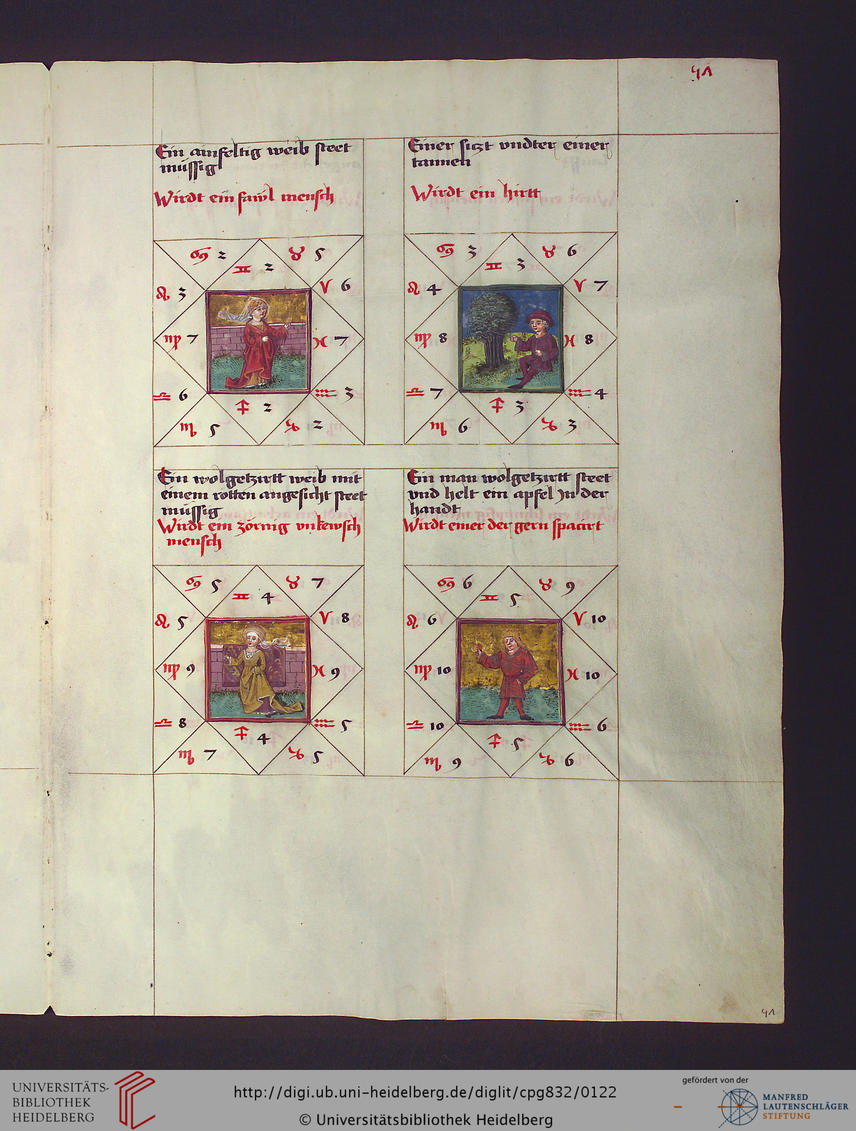 41
Ein ainfeltig weib steet
müssig
Wirdt ein fawl mensch
♋ 2 ♊ 2 ♉ 5
♌ 3 ♈ 6
♍ 7 ♓ 7
♎ 6 ♒ 3
♏ 5 ♐ 2 ♑ 2
Einer sitzt vndter einer
tannen
Wirdt ein hirtt
♋ 3 ♊ 3 ♉ 6
♌ 4 ♈ 7
♍ 8 ♓ 8
♎ 7 ♒ 4
♏ 6 ♐ 3 ♑ 3
Ein wolgetzirtt weib mit
einem rotten angesicht steet
müssig
Wirdt ein zörnig vnkewsch
mensch
♋ 5 ♊ 4 ♉ 7
♌ 5 ♈ 8
♍ 9 ♓ 9
♎ 8 ♒ 5
♏ 7 ♐ 4 ♑ 5
Ein man wolgetzirtt steet
vnd helt ein apfel Jn der
handt
Wirdt einer der gern spacirt
♋ 6 ♊ 5 ♉ 9
♌ 6 ♈ 10
♍ 10 ♓ 10
♎ 10 ♒ 6
♏ 9 ♐ 5 ♑ 6
41
UNIVERSITÄTS-
BIBLIOTHEK
HEIDELBERG
http://digi.ub.uni-heidelberg.de/diglit/cpg832/0122
© Universitätsbibliothek Heidelberg
gefördert von der
MANFRED
LAUTENSCHLÄGER
STIFTUNG